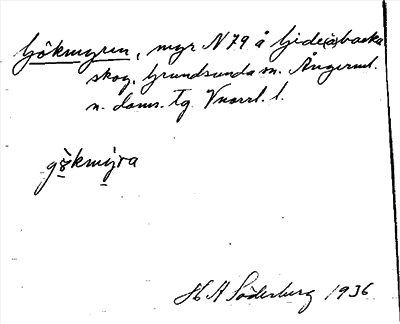 Gökmyren, myr N79 å Gide(å)backa
skog, Grundsunda sn. Ångerml.
n. doms. Tg. Vnorrl. l.
gökmy̍ra
H A Söderburg 1936